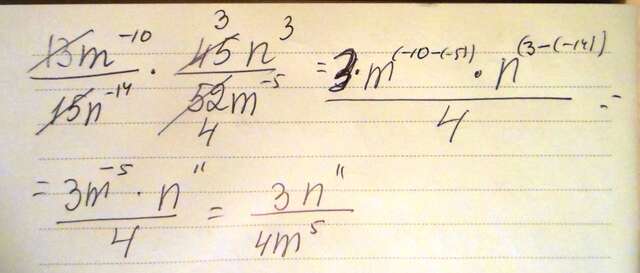 13m⁻¹⁰/15n⁻¹⁴ · 45n³/52m⁻⁵ = 3·m^(-10-(-5)) · n^(3-(-14))/4 =
= 3m⁻⁵ · n¹¹/4 = 3n¹¹/4m⁵